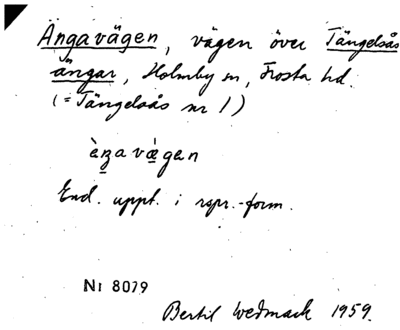 Ängavägen, vägen över Tängelsås
ängar, Holmby sn, Frosta hd.
(= Tängelsås nr 1)
ὲŋavæ̀gen
End. uppt. i rspr.-form.
Nr 8079
Bertil Wedmark 1959.